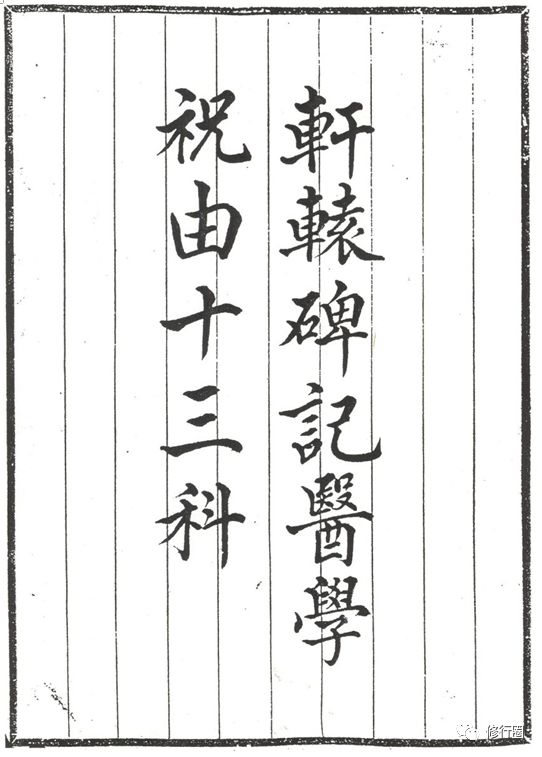 軒轅碑記醫學
祝由十三科
修行圈